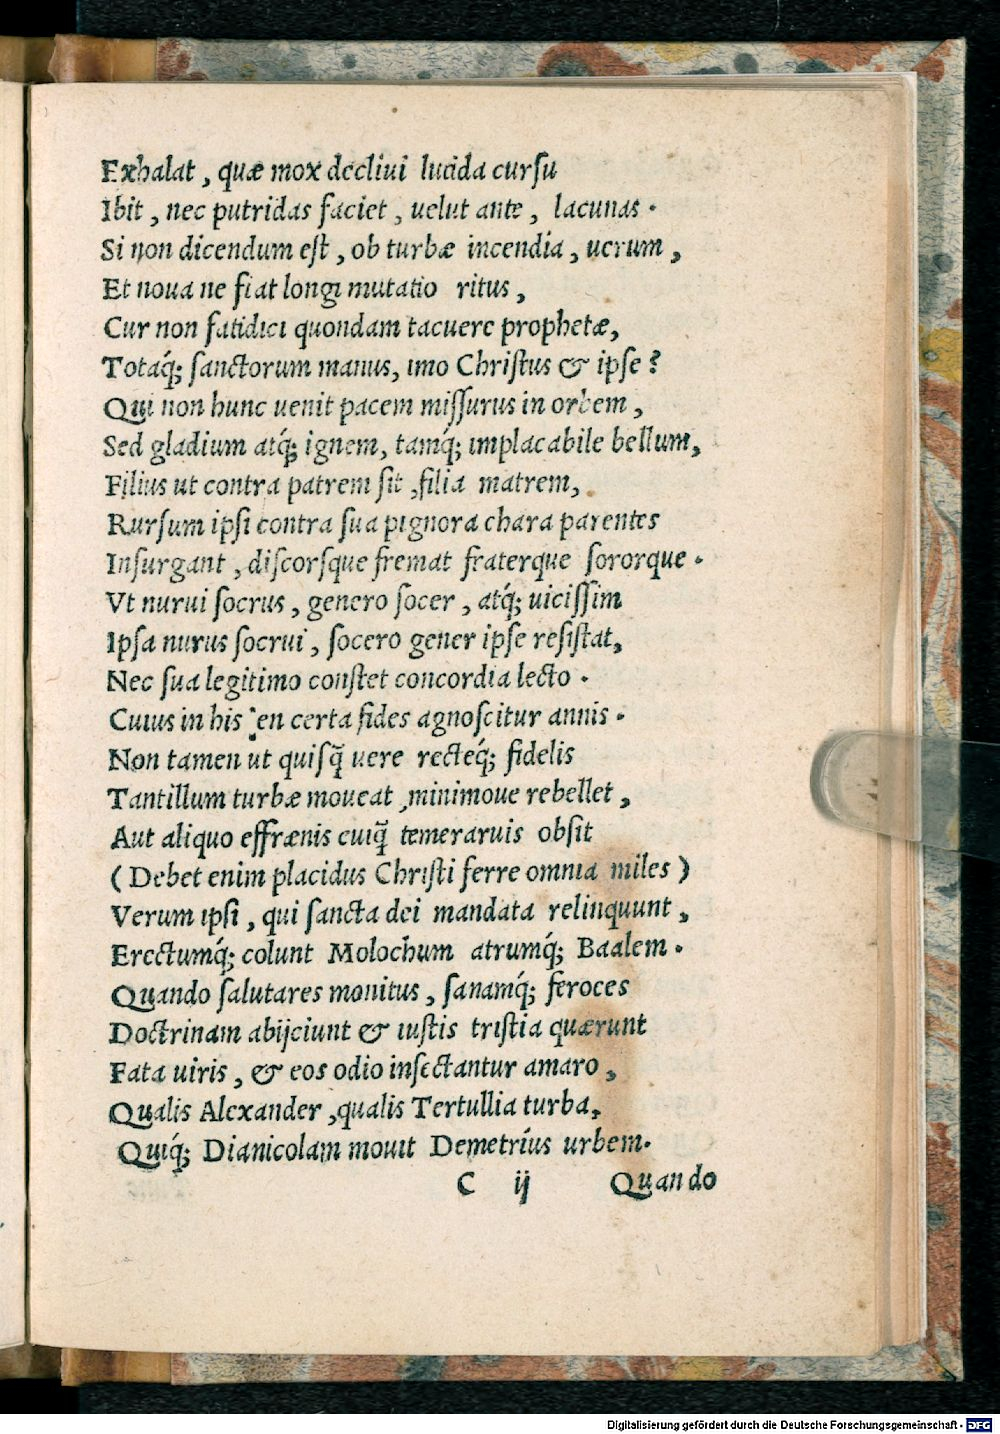 Exhalat , quæ mox decliui lucida cursu
Ibit , nec putridas faciet , uelut ante , lacunas .
Si non dicendum est , ob turbæ incendia , uerum ,
Et noua ne fiat longi mutatio ritus ,
Cur non fatidici quondam tacuere prophetæ,
Totaq́; sanctorum manus, imo Christus & ipse ?
Qui non hunc uenit pacem missurus in orbem ,
Sed gladium atq́; ignem, tamq́; implacabile bellum,
Filius ut contra patrem sit ,filia matrem,
Rursum ipsi contra sua pignora chara parentes
Insurgant , discorsque fremat fraterque sororque .
Vt nurui socrus , genero socer , atq́; uicissim
Ipsa nurus socrui , socero gener ipse resistat,
Nec sua legitimo constet concordia lecto .
Cuius in his en certa fides agnoscitur annis .
Non tamen ut quisq̃ uere recteq́; fidelis
Tantillum turbæ moueat ,minimoue rebellet ,
Aut aliquo effrænis cuiq̃ temeraruis obsit
( Debet enim placidus Christi ferre omnia miles )
Verum ipsi , qui sancta dei mandata relinquunt ,
Erectumq́; colunt Molochum atrumq́; Baalem .
Quando salutares monitus , sanamq́; feroces
Doctrinam abijciunt & iustis tristia quærunt
Fata uiris , & eos odio insectantur amaro ,
Qualis Alexander ,qualis Tertullia turba,
Quiq́; Dianicolam mouit Demetrius urbem.
C ij Quando
Digitalisierung gefördert durch die Deutsche Forschungsgemeinschaft - DFG